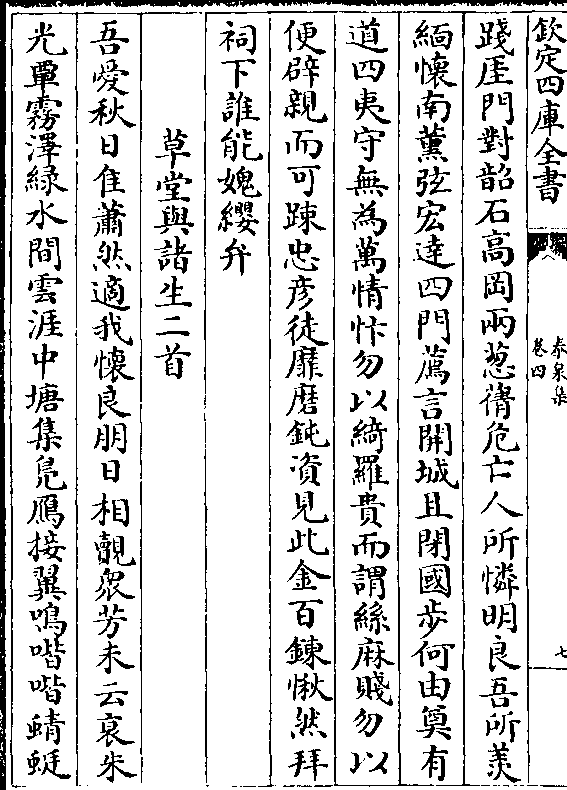 欽定四庫全書
泰泉集
卷四
七
踐厓門對韶石高岡兩葱蒨危亡人所憐明良吾所羡
緬懷南薫弦宏達四門薦言開城且閉國步何由奠有
道四夷守無為萬情忭勿以綺羅貴而謂絲麻賤勿以
便辟親而可踈忠彦徒靡磨鈍資見此金百鍊愀然拜
祠下誰能媿纓弁
草堂與諸生二首
吾愛秋日隹蕭然適我懷良朋日相覿衆芳未云衰朱
光覃霧澤緑水間雲涯中塘集鳬鴈接翼鳴喈喈蜻蜓